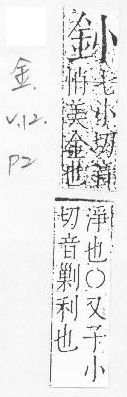 釥
七小切音
悄美金也
淨也○又子小
切音剿利也
金.
V.12.
P2